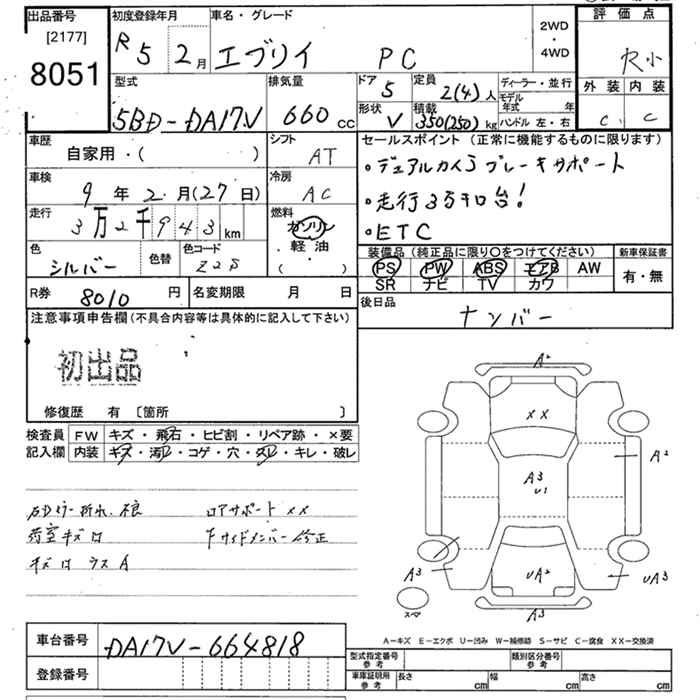 出品番号
[2177]
8051
初度登録年月
R5 2月
車名・グレード
エブリイ PC
2WD
・
4WD
評価点
R小
外装 内装
C C
型式
5BD-DA17V
排気量
660 cc
ドア
5
定員
2(4)人
形状
V
積載
350(250)kg
ディーラー・並行
モデル年式 年
ハンドル 左・右
車歴
自家用・( )
シフト
AT
車検
9年2月(27日)
冷房
AC
走行
3万2千943km
燃料
ガソリン
軽油
・
( )
色
シルバー
色替
色コード
Z2S
R券
8010円
名変期限 月 日
セールスポイント(正常に機能するものに限ります)
・デュアルカメラブレーキサポート
・走行3万キロ台!
・ETC
装備品(純正品に限り○をつけてください)
PS PW ABS エアB AW
SR ナビ TV カワ
新車保証書
有・無
後日品
ナンバー
注意事項申告欄(不具合内容等は具体的に記入して下さい)
初出品
修復歴 有 〔箇所 〕
検査員
記入欄
FW キズ・飛石・ヒビ割・リペア跡・×要
内装 キズ・汚れ・コゲ・穴・スレ・キレ・破レ
ロアサポート XX
荷室キズ
FサイドメンバーI修正
A²
XX
A²
A3
U1
A3
UA²
UA3
A3
スペア
A-キズ E-エクボ U-凹み W-補修跡 S-サビ C-腐食 XX-交換済
車台番号
DA17V-664818
登録番号
型式指定番号
参考
類別区分番号
参考
車庫証明用
参考
長さ cm 幅 cm 高さ cm